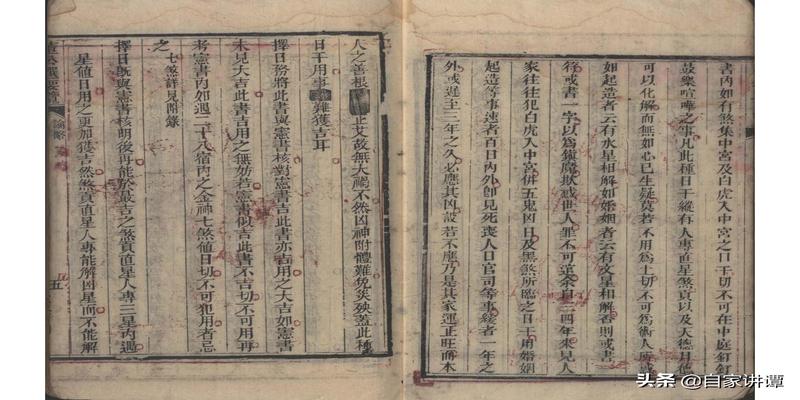 書內如有煞集中宮及白虎入中宮之日干切不可在中庭釘釘
鼓樂喧嘩之事凡此種日干縱有人專直星煞貢以及天德月德
可以化解而無如心已生疑莫若不用為上切不可為術人廢惑
如起造者云有水星相解如婚姻者云有文星相解否則或書
符或書一字以為鎮魘欺惑世人罪不可逭余自三四年來見人
家往往犯白虎入中宮併五鬼凶日及黑煞所臨之日干用婚姻
起造等事速者百日內外即見死喪人口官司等事緩者一年之
外或遲至三年之久必應其凶設若不應乃是其家運正旺而本
人之善根 正艾故無大禍不然凶神附體難免災殃蓋此種
日干用事 難獲吉耳
擇日務將此書與憲書核對憲書吉此書亦吉用之大吉如憲書
未見大吉此書吉用之無妨若憲書似吉此書不吉切不可用再
考憲書內如遇二十八宿內之金神七煞值日切不可犯用者忌
之 七煞詳見附錄
擇日既與憲書核明後再能於最吉之煞貢直星人專三星內遇
一星值日用之更加獲吉然煞貢直星人專能解凶星而不能解
五
头条 @自家讲谭